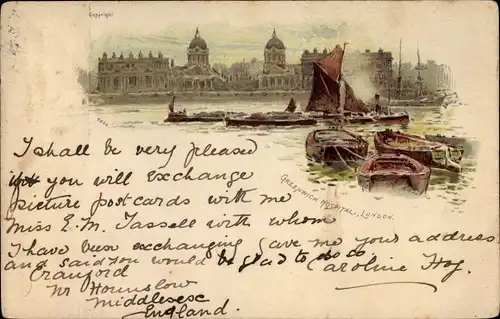 Copyright
GREENWICH HOSPITAL, LONDON.
I shall be very pleased
if you will exchange
picture postcards with me
Miss E. M. Tassell with whom
I have been exchanging gave me your address
and said you would be glad to do so
Caroline
Cranford
Nr Hounslow
Middlesesc
England.